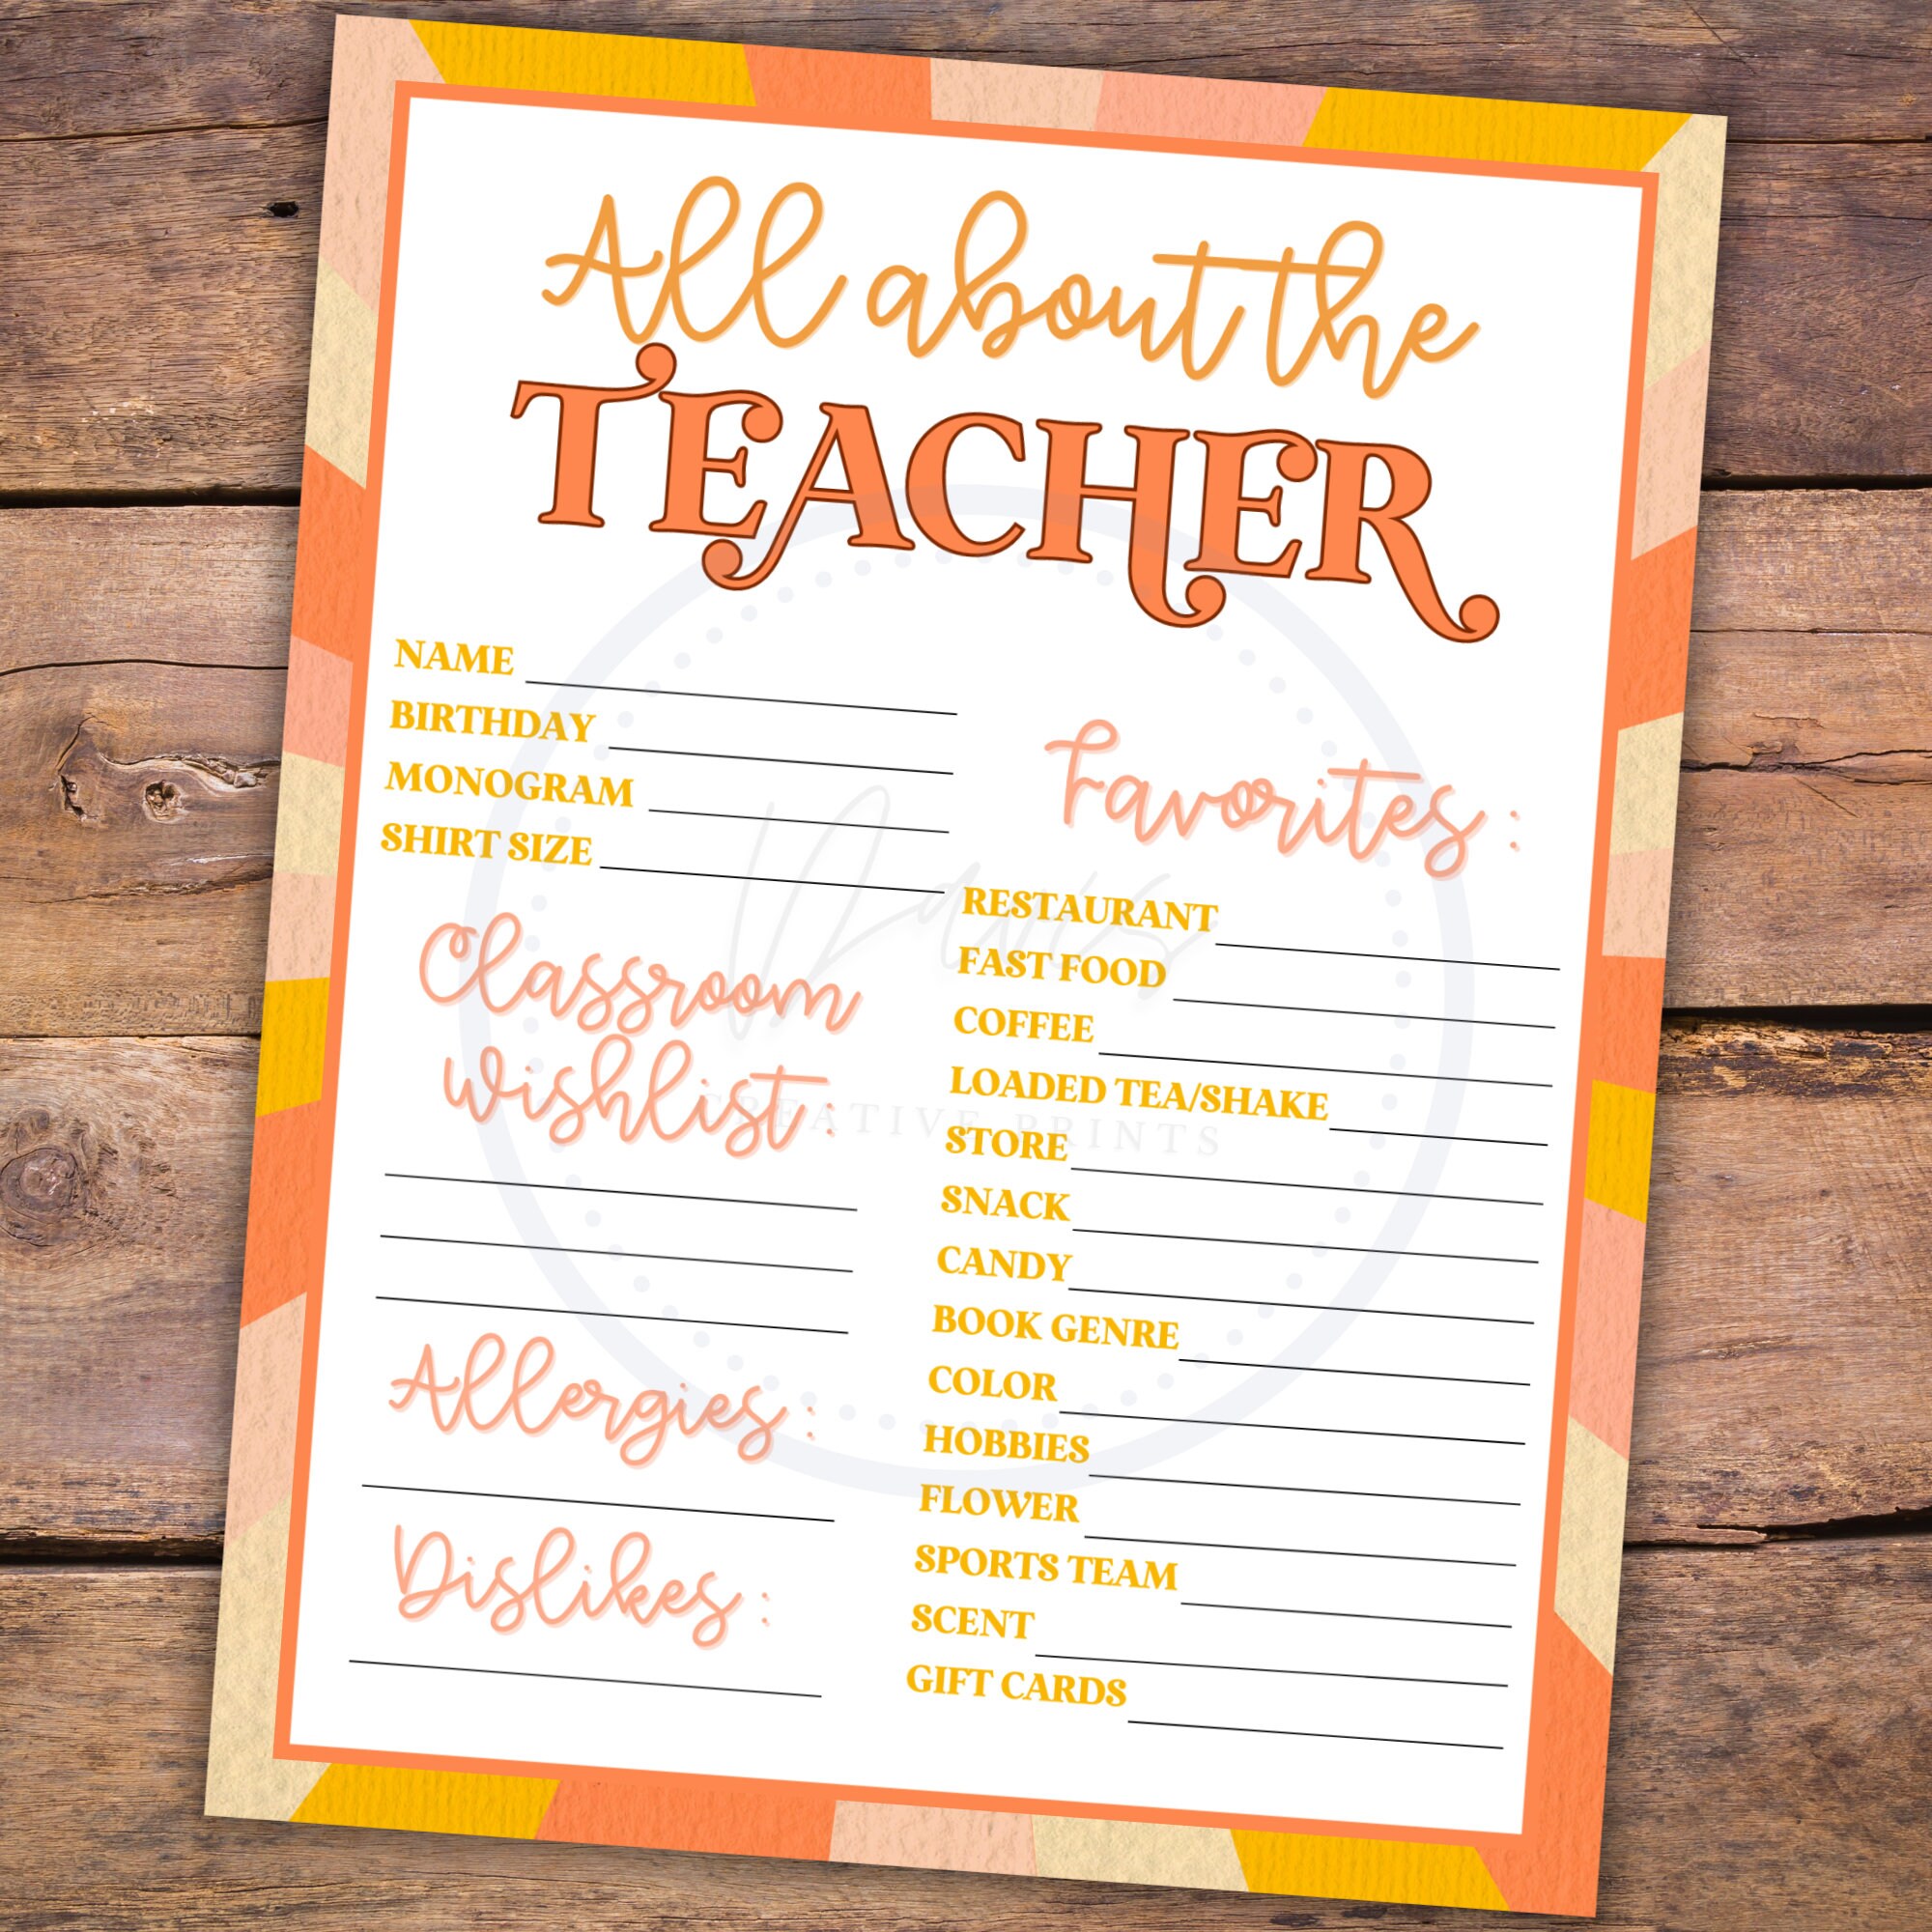 All about the
TEACHER
NAME
BIRTHDAY
MONOGRAM
SHIRT SIZE
Classroom
Wishlist:
Allergies:
Dislikes:
Favorites:
RESTAURANT
FAST FOOD
COFFEE
LOADED TEA/SHAKE
STORE
SNACK
CANDY
BOOK GENRE
COLOR
HOBBIES
FLOWER
SPORTS TEAM
SCENT
GIFT CARDS
Davis
CREATIVE PRINTS